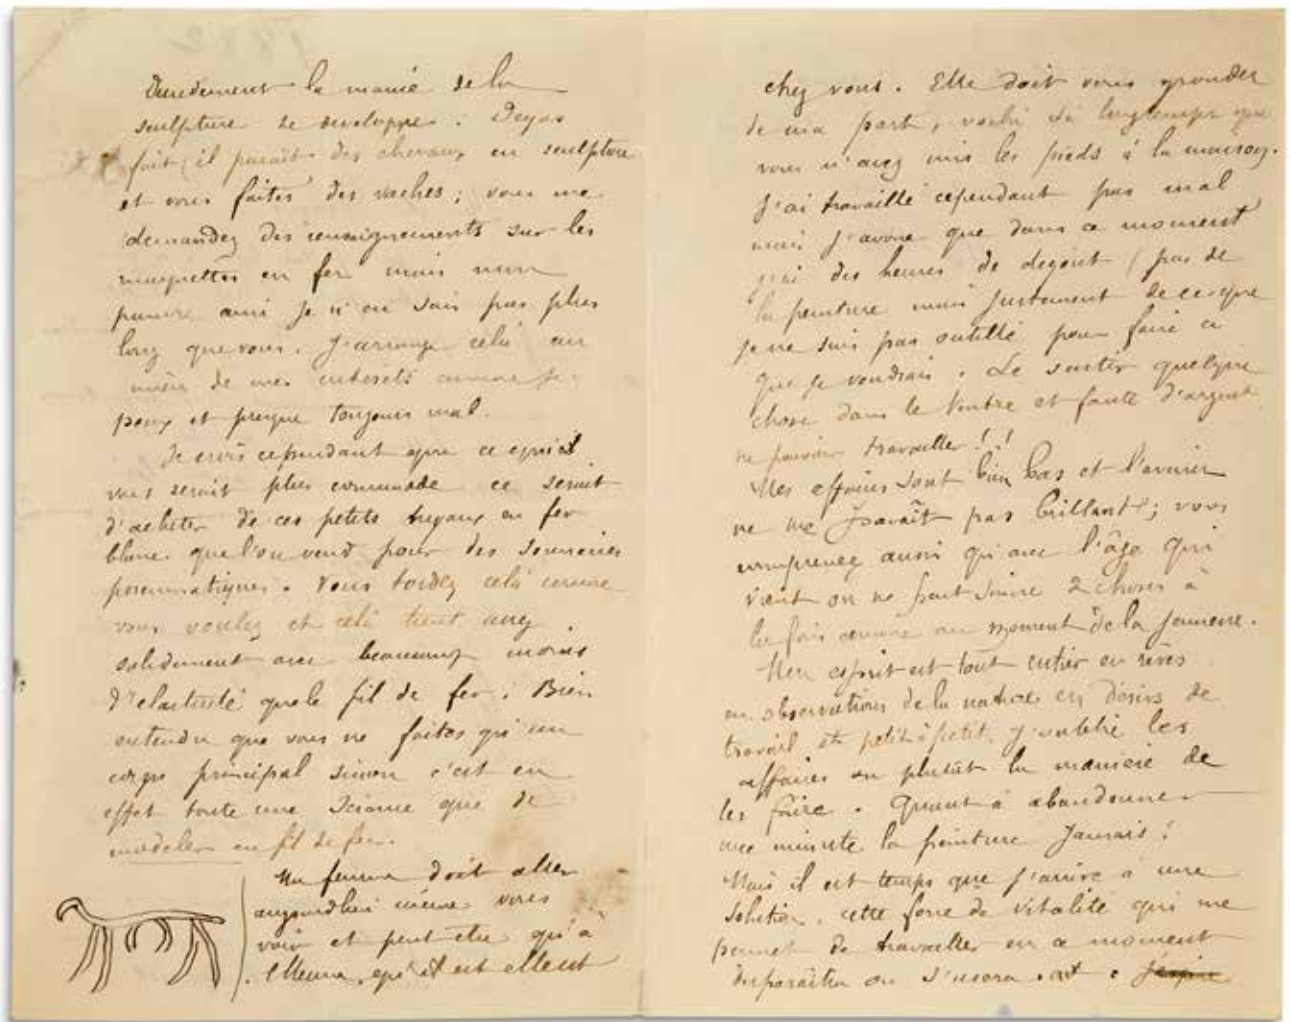 Décidement la manie de la
sculpture se developpe. Degas
fait (il parait des chevaux en sculpture
et vous faites des vaches; vous me
demandez des renseignements sur les
maquettes en fer mais mon
pauvre ami je n'en sais pas plus
long que vous. J'arrange celà au
mieu de mes intérêts comme je
peux et presque toujours mal.
Je crois cependant que ce qui
vous serait plus commode ce serait
d'acheter de ces petits tuyaux en fer
blanc que l'on vend pour des sonneries
pneumatiques. Vous tordez celà comme
vous voulez et celà tient assez
solidement avec beaucoup moins
d'elasticité que le fil de fer; Bien
entendu que vous ne faites qu'un
corps principal sinon c'est en
effet toute une science que de
modeler en fil de fer.
Ma femme doit aller
aujourdhui même vous
voir et peut etre qu'à
l'heure qu'il est elle est
chez vous. Elle doit vous gronder
de ma part, voilà si longtemps que
vous n'avez mis les pieds à la maison.
J'ai travaillé cependant pas mal
mais j'avoue que dans ce moment
j'ai des heures de degout (pas de
la peinture mais justement de ce que
je ne suis pas outillé pour faire ce
que je voudrais. Se sentir quelque
chose dans le ventre et faute d'argent
ne pouvoir travailler!!
Mes affaires sont bien bas et l'avenir
ne me parait pas brillant; vous
comprenez aussi qu'avec l'âge qui
vient on ne peut suivre 2 choses à
la fois comme au moment de la jeunesse.
Mon esprit est tout entier en rêves
en observations de la nature en désirs de
travail et petit à petit j'oublie les
affaires ou plutôt la maniere de
les faire. Quant à abandonner
une minute la peinture Jamais!
Mais il est temps que j'arrive à une
solution, cette force de vitalité qui me
permet de travailler en ce moment
disparaitra ou s'usera